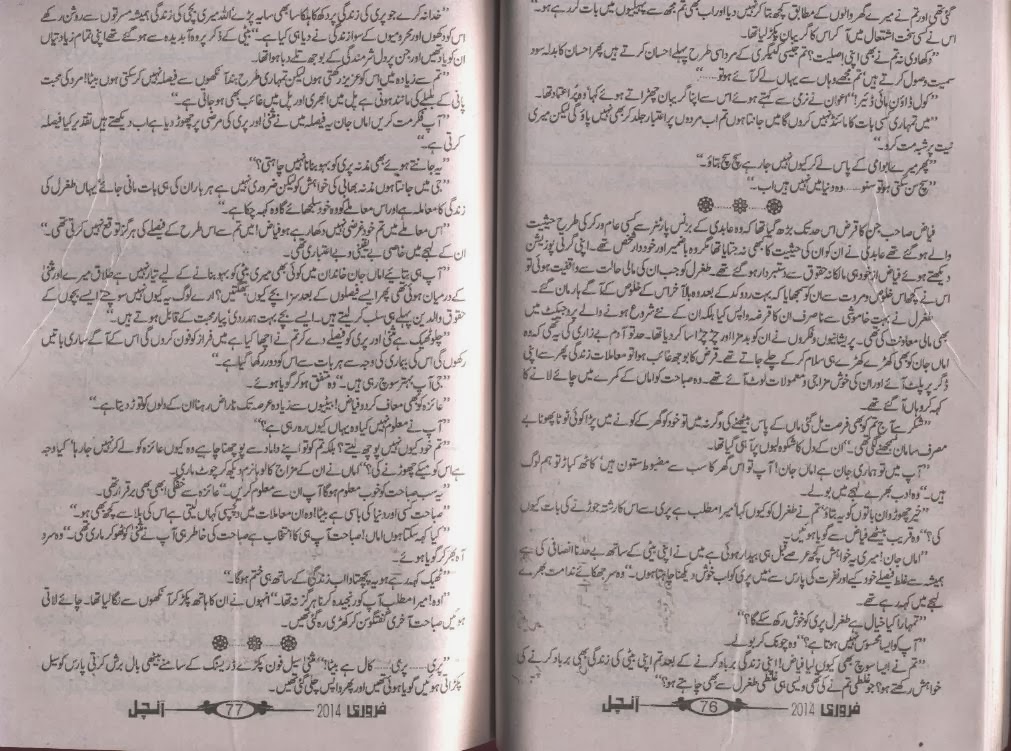 گئی تھی اور تم نے میرے گھر والوں کے مطابق کچھ بتا کر نہیں دیا اور اب بھی تم مجھ سے پہیلیوں میں بات کر رہے ہو۔“
اس نے کسی سخت اشتعال میں آ کر اس کا گریبان پکڑ لیا تھا۔
”دکھا دی نہ تم نے بھی اپنی اصلیت؟ تم جیسی کیٹیگری کے مرد اسی طرح پہلے احسان کرتے ہیں پھر احسان کا بدلہ سود
سمیت وصول کرتے ہیں تم مجھے وہاں سے یہاں لے کر آئے ہو تو......“
”کول ڈاؤن مائی ڈئیر!“ اعوان نے نرمی سے کہتے ہوئے اس سے اپنا گریبان چھڑاتے ہوئے کہا وہ پر اعتماد تھا۔
”میں تمہاری کسی بات کا مائنڈ نہیں کروں گا میں جانتا ہوں تم اب مردوں پر اعتبار جلد کر بھی نہیں پاؤ گی لیکن میری
نیت پر شبہ مت کرو۔“
”پھر میرے پاپا ممی کے پاس لے کر کیوں نہیں جا رہے سچ سچ بتاؤ۔“
”سچ سن سکتی ہو تو سنو...... وہ دنیا میں نہیں ہیں اب۔“
فیاض صاحب جن کا قرض اس حد تک بڑھ گیا تھا کہ وہ عابدی کے بزنس پارٹنر سے کسی عام ورکر کی طرح حیثیت
والے ہو گئے تھے عابدی نے ان کو ان کی حیثیت کا کبھی نہ جتایا تھا مگر وہ باضمیر اور خوددار شخص تھے۔ اپنی گرتی پوزیشن
دیکھتے ہوئے فیاض از خود ہی مالکانہ حقوق سے دستبردار ہو گئے تھے۔ طغرل کو جب ان کی مالی حالت سے واقفیت ہوئی تو
اس نے کچھ اس خلوص و مروت سے ان کو سمجھایا کہ بہت رد و کد کے بعد وہ بالآخر اس کے خلوص کے آگے ہار مان گئے۔
طغرل نے بہت خاموشی سے نا صرف ان کا قرضہ واپس کیا بلکہ ان کے نئے شروع ہونے والے پروجیکٹ میں
بھی مالی معاونت کی تھی۔ پریشانیوں و فکروں نے ان کو بدمزاج اور چڑچڑا سا کر دیا تھا۔ حد تو آدم بے زاری کی یہ تھی کہ وہ
اماں جان کو بھی کھڑے کھڑے ہی سلام کر کے چلے جاتے تھے۔ قرض کا بوجھ غائب ہوا تو معاملات زندگی پھر سے اپنی
ڈگر پر پلٹ آئے اور ان کی خوش مزاجی و معمولات لوٹ آئے تھے۔ وہ صباحت کو اماں کے کمرے میں چائے لانے کا
کہہ کر وہاں آ گئے تھے۔
”شکر ہے آج تم کو بھی فرصت مل گئی ماں کے پاس بیٹھنے کی وگرنہ میں تو خود کو گھر کے کونے میں پڑا کوئی ٹوٹا پھوٹا بے
مصرف سامان سمجھنے لگی تھی۔“ ان کے دل کا شکوہ لبوں پر آ ہی گیا تھا۔
”آپ میں تو ہماری جان ہے اماں جان! آپ تو اس گھر کا سب سے مضبوط ستون ہیں‘ کاٹھ کباڑ تو ہم لوگ
ہیں۔“ وہ ادب بھرے لہجے میں بولے۔
”خیر چھوڑو ان باتوں کو یہ بتاؤ‘ تم نے طغرل کو کیوں کہا‘ میرا مطلب ہے پری سے اس کا رشتہ جوڑنے کی بات کیوں
کی؟“ وہ قریب بیٹھے فیاض سے گویا ہوئیں۔
”اماں جان! میری یہ خواہش کچھ عرصے قبل ہی بیدار ہوئی ہے میں نے اپنی بیٹی کے ساتھ بے حد نا انصافی کی ہے
ہمیشہ سے غلط فیصلے خود کیے اور نفرت کی پارس سے میں پری کو اب خوش دیکھنا چاہتا ہوں۔“ وہ سر جھکائے ندامت بھرے
لہجے میں کہہ رہے تھے۔
”تمہارا کیا خیال ہے طغرل پری کو خوش رکھ سکے گا؟“
”آپ کو ایسا محسوس نہیں ہوتا ہے؟“ وہ چونک کر بولے۔
”تم نے ایسا سوچ بھی کیوں لیا فیاض! اپنی زندگی برباد کرنے کے بعد تم اپنی بیٹی کی زندگی بھی برباد کرنے کی
خواہش رکھتے ہو؟ جو غلطی تم نے کی تھی ویسی ہی غلطی طغرل سے بھی چاہتے ہو؟“
فروری 2014 76 آنچل
”خدا نہ کرے جو پری کی زندگی پر دکھ کا ہلکا سا بھی سایہ پڑے اللہ میری بچی کی زندگی ہمیشہ مسرتوں سے روشن رکھے
اس کو دکھوں اور محرومیوں کے سوا زندگی نے دیا ہی کیا ہے۔“ بیٹی کے ذکر پر وہ آبدیدہ سے ہو گئے تھے اپنی تمام زیادتیاں
ان کو یاد تھیں اور جن پر دل شرمندگی کے بوجھ تلے دبا ہوا تھا۔
”تم سے زیادہ میں اس کو عزیز رکھتی ہوں لیکن تمہاری طرح بند آنکھوں سے فیصلہ نہیں کر سکتی ہوں بیٹا! مرد کی محبت
پانی کے بلبلے کی مانند ہوتی ہے پل میں ابھری اور پل میں غائب بھی ہو جاتی ہے۔“
”آپ فکر مت کریں اماں جان یہ فیصلہ میں نے مثنیٰ اور پری کی مرضی پر چھوڑ دیا ہے اب دیکھتے ہیں تقدیر کیا فیصلہ
کرتی ہے۔“
”یہ جانتے ہوئے بھی مذنہ پری کو بہو بنانا نہیں چاہتی؟“
”جی میں جانتا ہوں مذنہ بھابی کی خواہش کو لیکن ضروری نہیں ہے ہر بار ان کی ہی بات مانی جائے‘ یہاں طغرل کی
زندگی کا معاملہ ہے اور اس معاملے کو وہ خود سلجھائے گا وہ کہہ چکا ہے۔“
”اس معاملے میں تم خود غرضی نہیں دکھا رہے ہو فیاض! میں تم سے اس طرح کے فیصلے کی ہرگز توقع نہیں کرتی تھی۔“
ان کے لہجے میں خاصی بے یقینی و بے اعتباری تھی۔
”آپ ہی بتائیے اماں جان خاندان میں کوئی بھی میری بیٹی کو بہو بنانے کے لیے تیار نہیں ہے طلاق میرے اور مثنیٰ
کے درمیان ہوئی تھی پھر ایسے فیصلوں کے بعد سزا بچے کیوں بھگتیں؟ ارے لوگ یہ کیوں نہیں سوچتے ایسے بچوں کے
حقوق والدین پہلے ہی سلب کر لیتے ہیں۔ ایسے بچے بہت ہمدردی‘ پیار محبت کے قابل ہوتے ہیں۔“
”چلو ٹھیک ہے مثنیٰ اور پری کو فیصلے دے کر تم نے اچھا کیا ہے میں فراز کو فون کروں گی اس کے آگے ساری باتیں
رکھوں گی اس کی بیماری کی وجہ سے ہر بات سے اس کو دور رکھا گیا ہے۔“
”جی آپ بہتر سوچ رہی ہیں۔“ وہ متفق ہو کر گویا ہوئے۔
”عائزہ کو بھی معاف کر دو فیاض! بیٹیوں سے زیادہ عرصہ تک ناراض رہنا ان کے دلوں کو توڑ دیتا ہے۔“
”آپ نے معلوم نہیں کیا وہ یہاں کیوں رہ رہی ہے؟“
”تم خود کیوں نہیں پوچھ لیتے؟ بلکہ تم کو تو اپنے داماد سے پوچھنا چاہیے وہ کیوں عائزہ کو لے کر نہیں جا رہا‘ کیا وجہ
ہے اس کو میکے چھوڑنے کی؟“ اماں نے ان کے مزاج کا لوہا نرم دیکھ کر چوٹ ماری۔
”یہ سب صباحت کو خوب معلوم ہو گا آپ ان سے معلوم کریں۔“ عائزہ سے خفگی ابھی بھی برقرار تھی۔
”صباحت کسی اور دنیا کی باسی ہے بیٹا! وہ ان معاملات میں دلچسپی کہاں لیتی ہے اس کی بلا سے کچھ بھی ہو۔“
”کیا کہہ سکتا ہوں اماں! صباحت آپ ہی کا انتخاب ہے صباحت کی خاطر ہی آپ نے مثنیٰ کو ٹھوکر ماری تھی۔“ وہ سرد
آہ بھر کر گویا ہوئے۔
”ٹھیک کہہ رہے ہو یہ پچھتاوا اب زندگی کے ساتھ ہی ختم ہو گا۔“
”اوہ! میرا مطلب آپ کو رنجیدہ کرنا ہرگز نہ تھا۔“ انہوں نے ان کا ہاتھ پکڑ کر آنکھوں سے لگا لیا تھا۔ چائے لاتی
ہوئیں صباحت آخری گفتگو سن کر کھڑی رہ گئی تھیں۔
”پری...... پری!...... کال ہے بیٹا!“ مثنیٰ سیل فون پکڑے ڈریسنگ کے سامنے بیٹھی بال برش کرتی پارس کو سیل
پکڑاتی ہوئیں گویا ہوئی تھیں اور پھر واپس چلی گئی تھیں۔
فروری 2014 77 آنچل